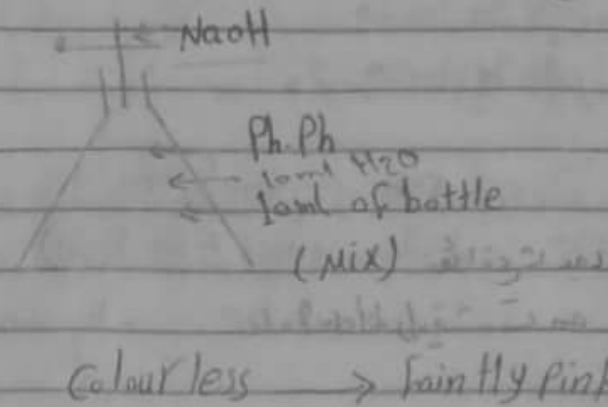 NaOH
Ph.Ph
10ml H2O
10ml of bottle
(Mix)
Colourless → faintly pink